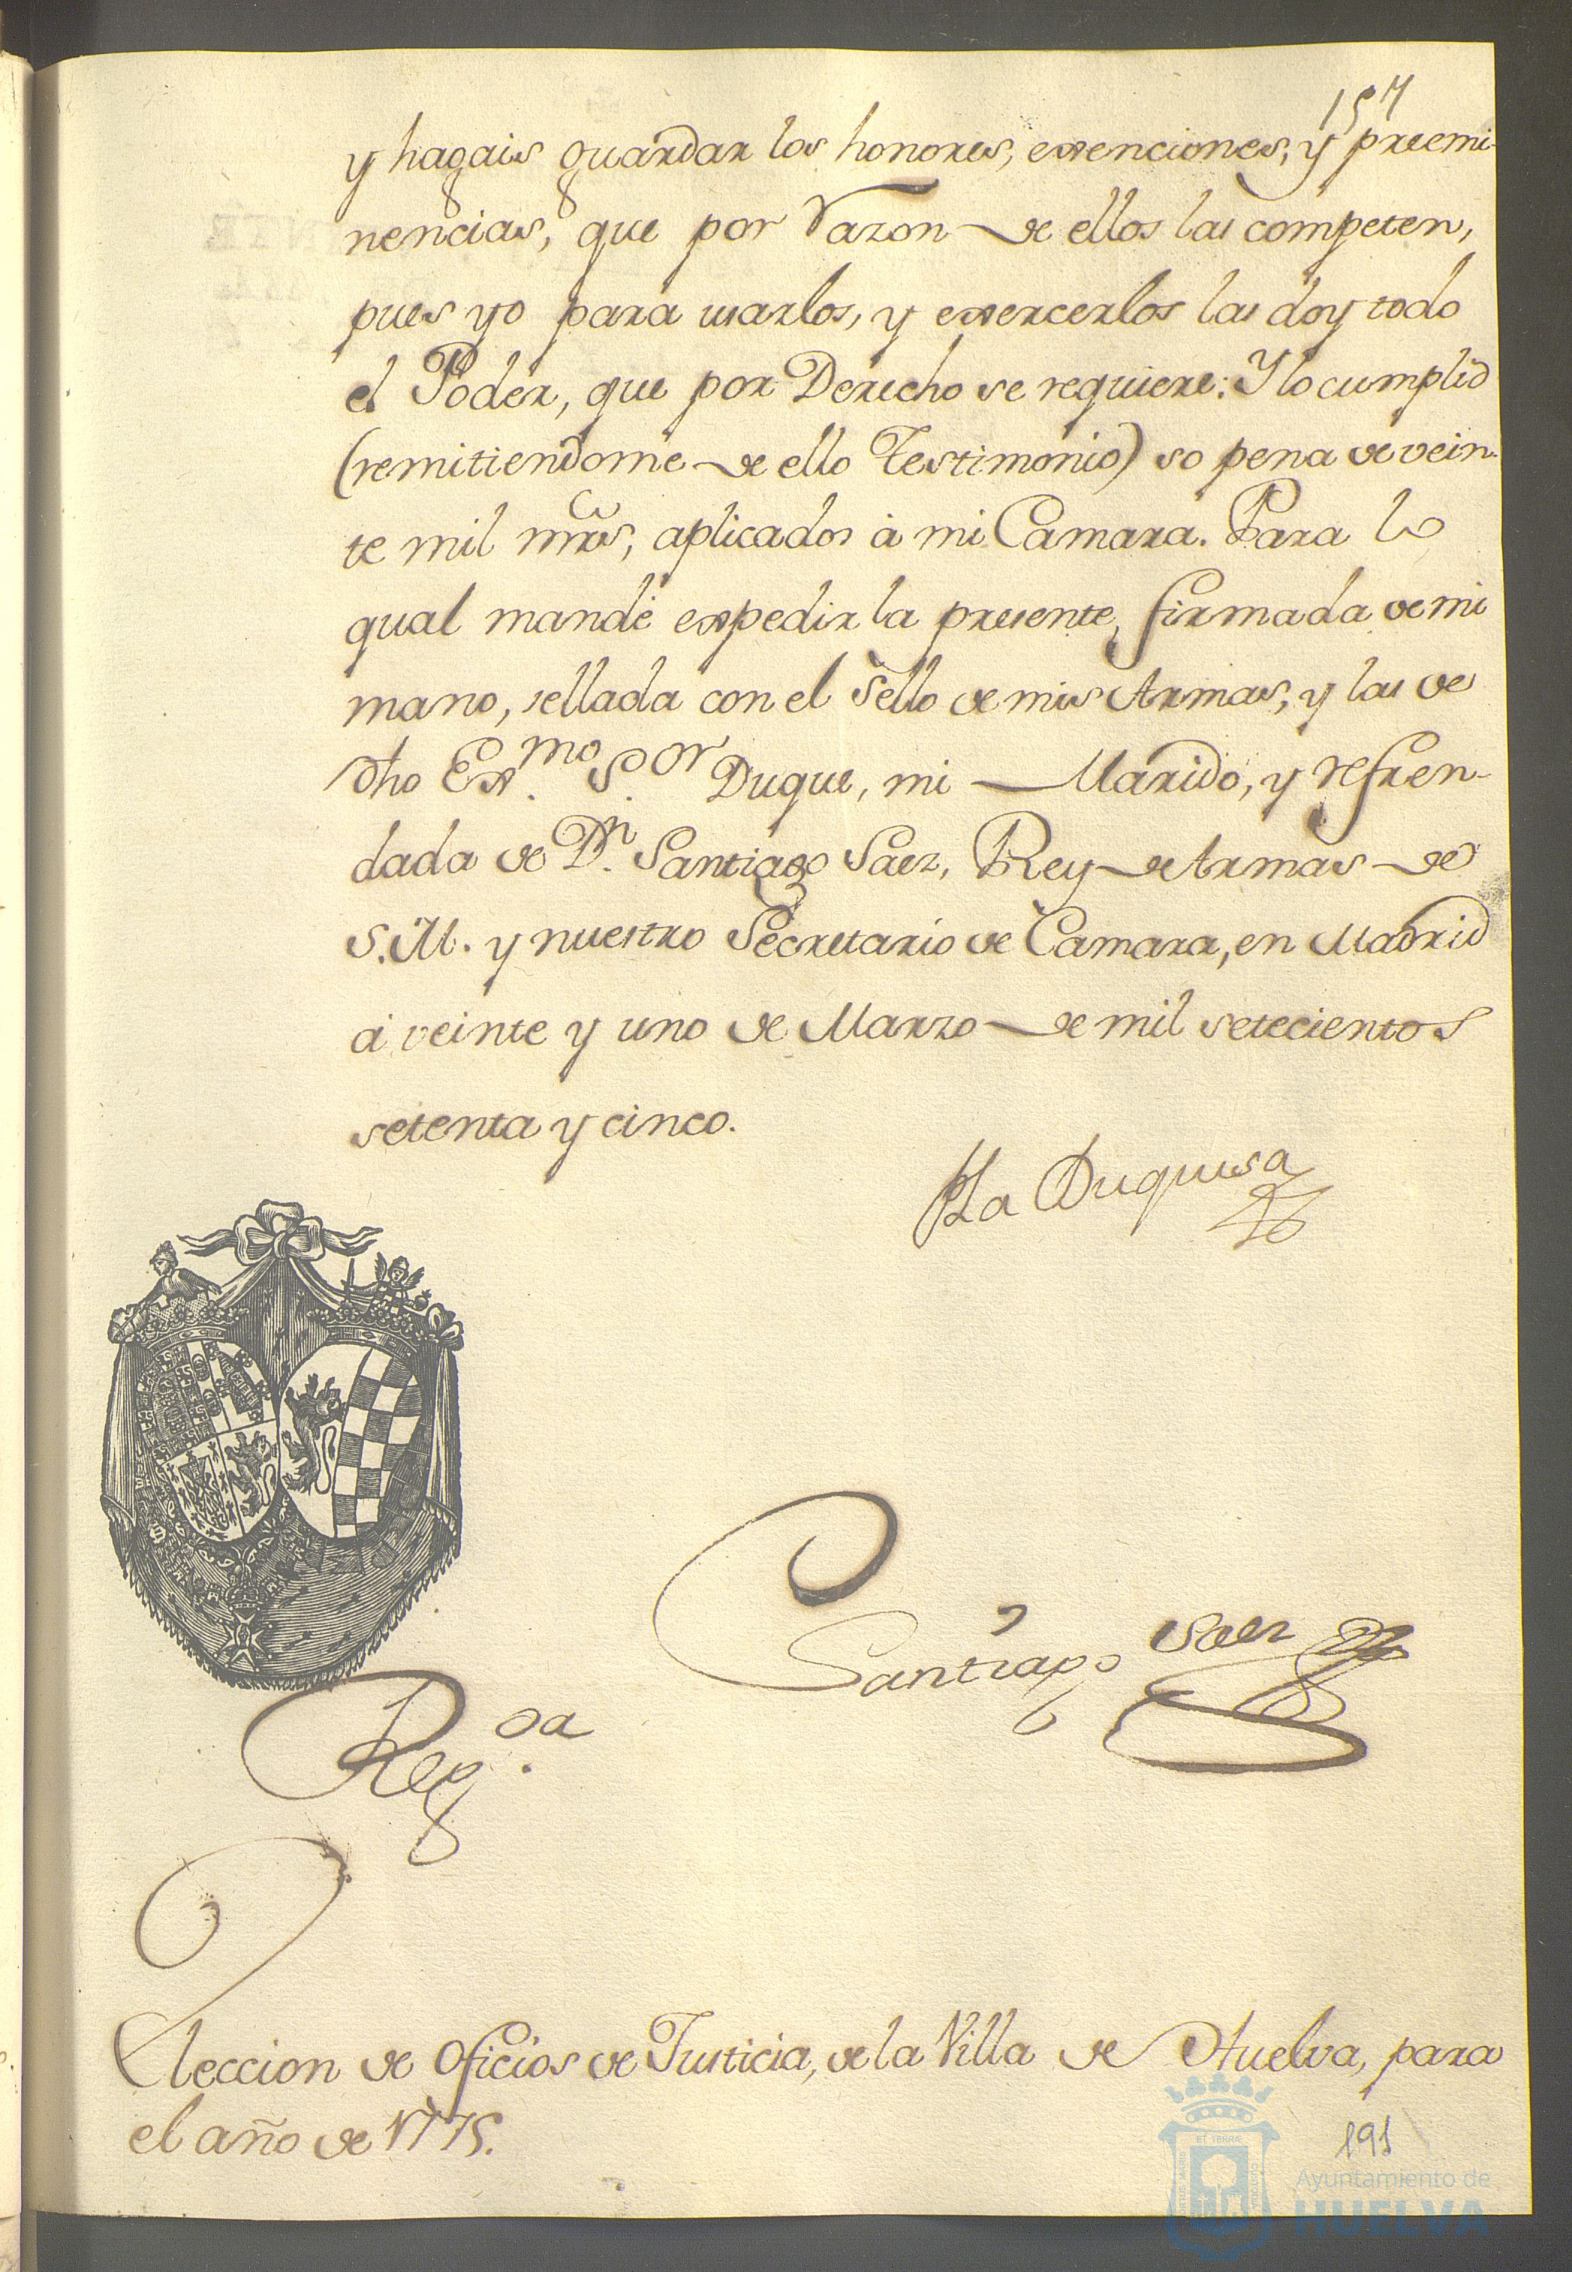 157
y hagais guardar los honores, exenciones, y preemi-
nencias, que por razon de ellos las competen,
pues yo para usarlos, y exercerlos las doy todo
el Poder, que por Derecho se requiere: Y lo cumplid
(remitiendome de ello Testimonio) so pena de vein-
te mil mrs, aplicados à mi Camara. Para lo
qual mandè expedir la presente, firmada de mi
mano, sellada con el Sello de mis Armas, y las de
dho Ex.mo S.or Duque, mi Marido, y refren-
dada de Dn. Santiago Saez, Rey de Armas de
S.M. y nuestro Secretario de Camara, en Madrid
à veinte y uno de Marzo de mil setecientos
setenta y cinco.
La Duquesa
Santiago Saez
Reg.da
Eleccion de Oficios de Justicia, de la Villa de Huelva, para
el año de 1775.
191
Ayuntamiento de
HUELVA